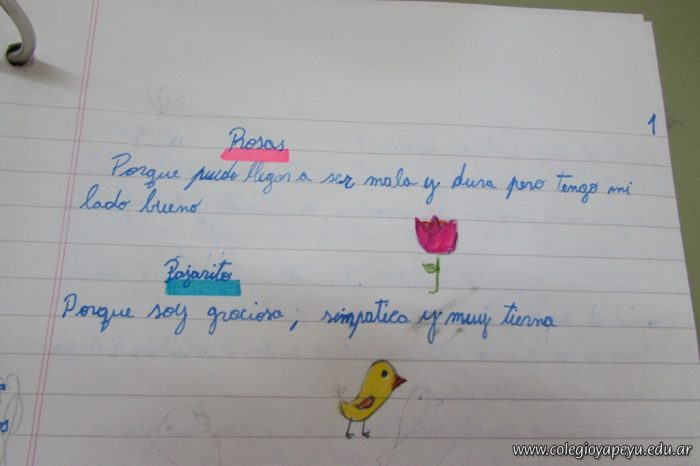 1
Rosas
Porque puedo llegar a ser mala y dura pero tengo mi
lado bueno
Pajarito
Porque soy graciosa, simpatica y muy tierna
www.colegioyapeyu.edu.ar